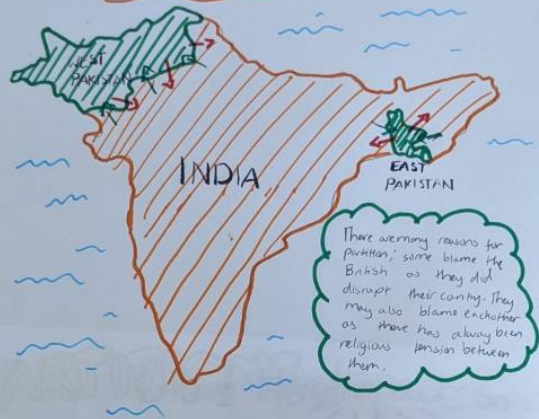 WEST
PAKISTAN
INDIA
EAST
PAKISTAN
There are many reasons for
partition; some blame the
British as they did
disrupt their country. They
may also blame eachother
as there has alway been
religious tension between
them.